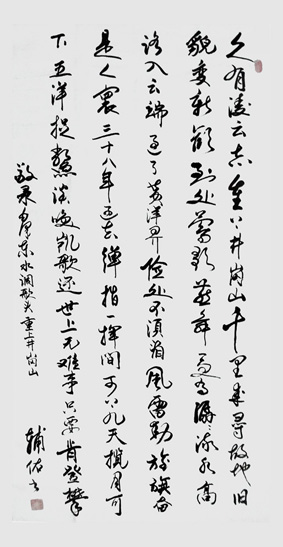 久有凌云志重上井岗山千里来寻故地旧
貌变新颜到处莺歌燕舞更有潺潺流水高
路入云端过了黄洋界险处不须看风雷动旌旗奋
是人寰三十八年过去弹指一挥间可上九天揽月可
下五洋捉鳖谈笑凯歌还世上无难事只要肯登攀
敬录毛泽东水调歌头重上井岗山
辅佑书